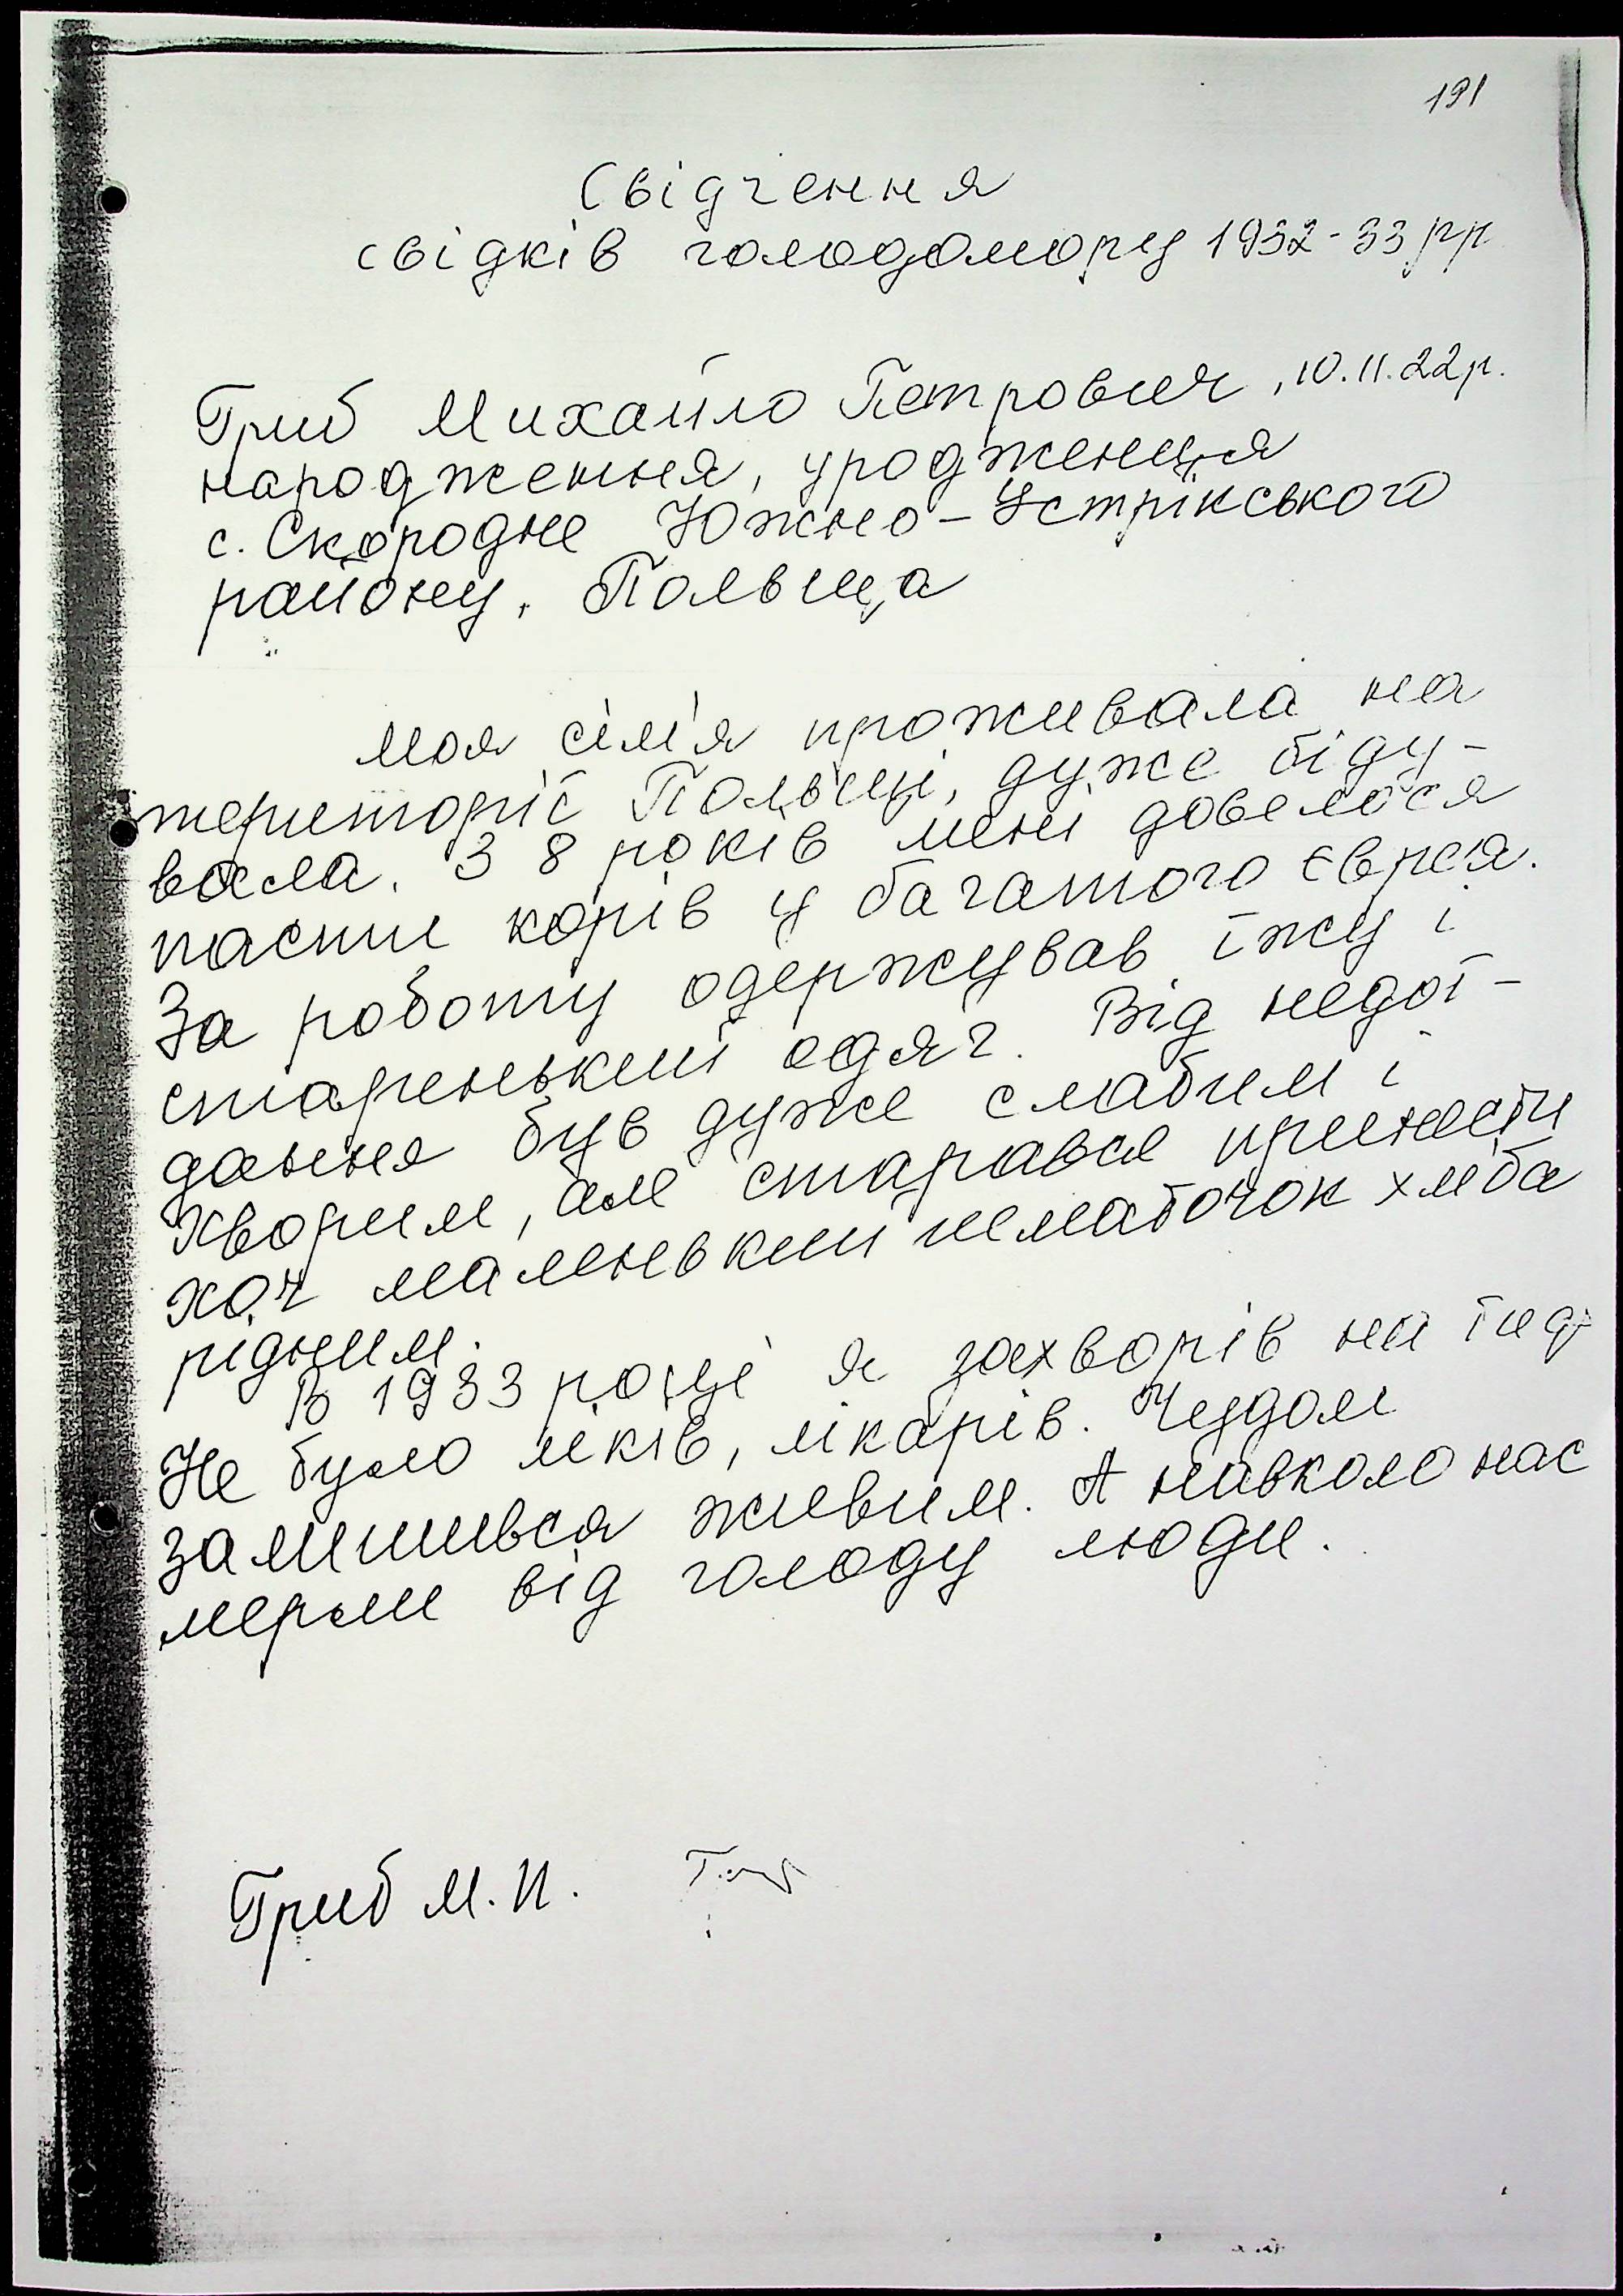 191
Свідчення
свідків голодомору 1932-33 рр
Гриб Михайло Петрович, 10.11.22 р.
народження, уродженця
с. Скородне Южно-Устрікського
району, Польща
Моя сім'я проживала на
території Польщі, дуже біду-
вала. З 8 років мені довелося
пасти корів у багатого єврея.
За роботу одержував їжу і
старенький одяг. Від недої-
дання був дуже слабим і
хворим, але старався принести
хоч маленький шматочок хліба
рідним.
В 1933 році я захворів на тиф
Не було ліків, лікарів. Чудом
залишився живим. А навколо нас
мерли від голоду люди.
Гриб М.П.